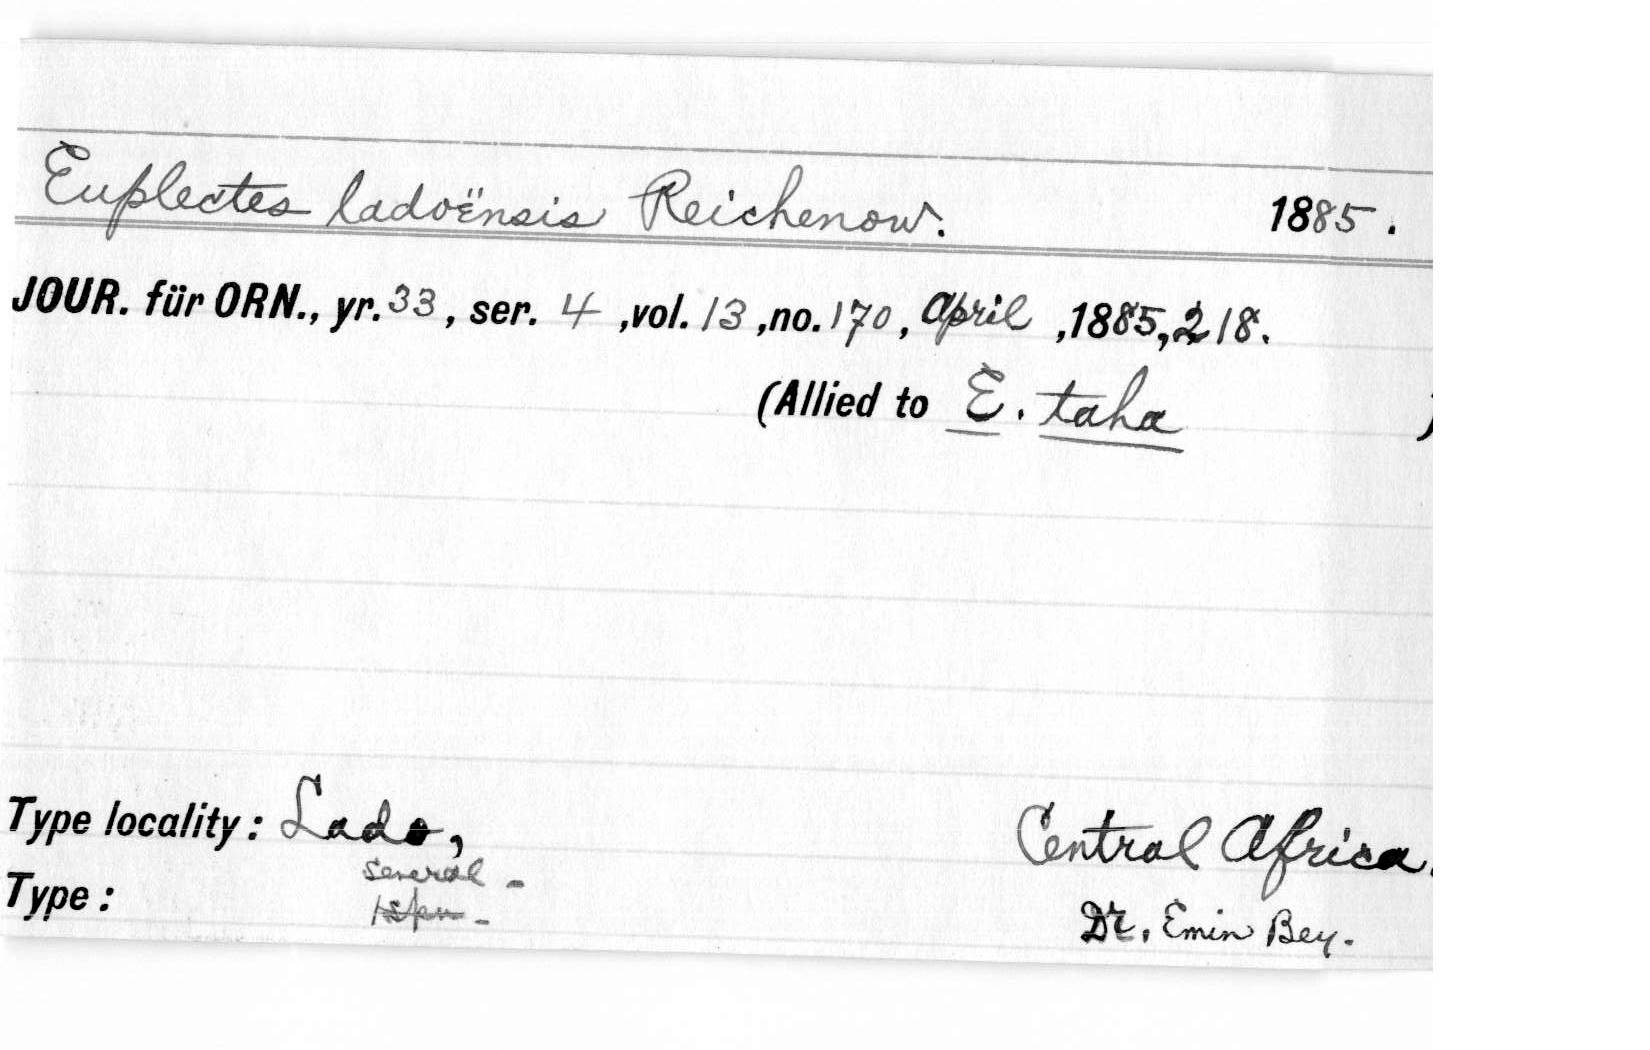 Euplectes ladoënsis Reichenow. 1885.
JOUR. für ORN., yr. 33, ser. 4, vol. 13, no. 170, April, 1885, 218.
(Allied to E. taha )
Type locality: Lado, Central Africa.
several -
Type: Dr. Emin Bey.